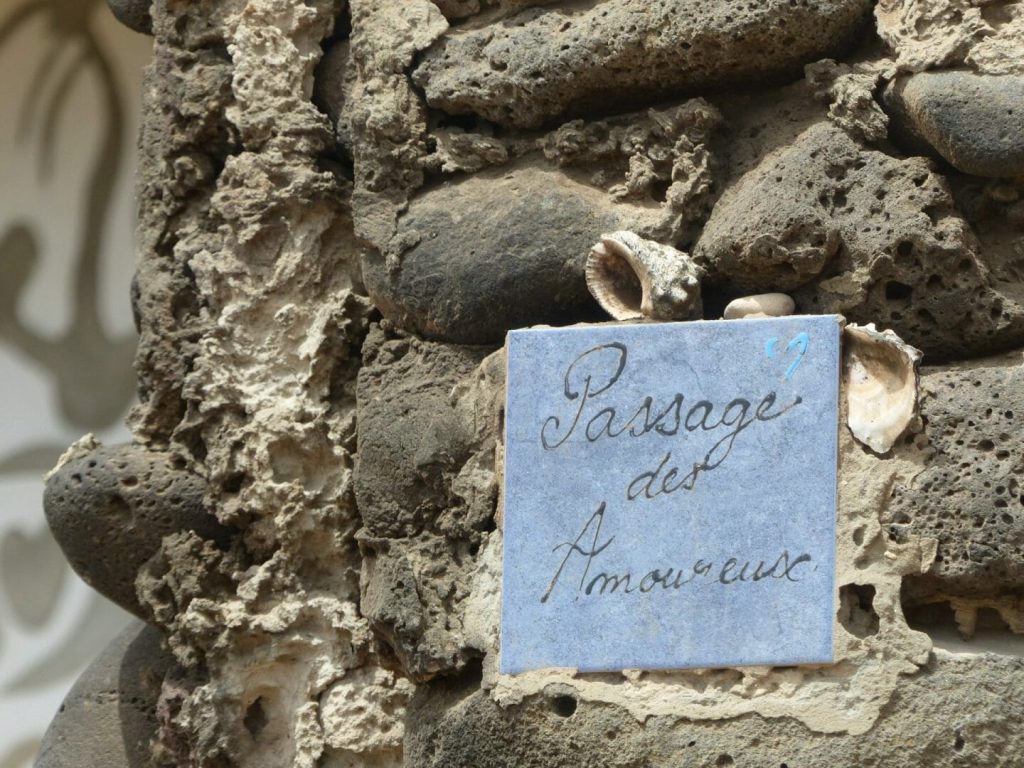 Passage
des
Amoureux